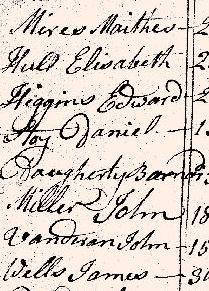 Mires Maithes — 2
Huld Elisabeth 2
Higgins Edward — 2
Hoy Daniel — 1
Daugherty Barnd
Miller John 18
Vandivan John — 15
Wells James — 30